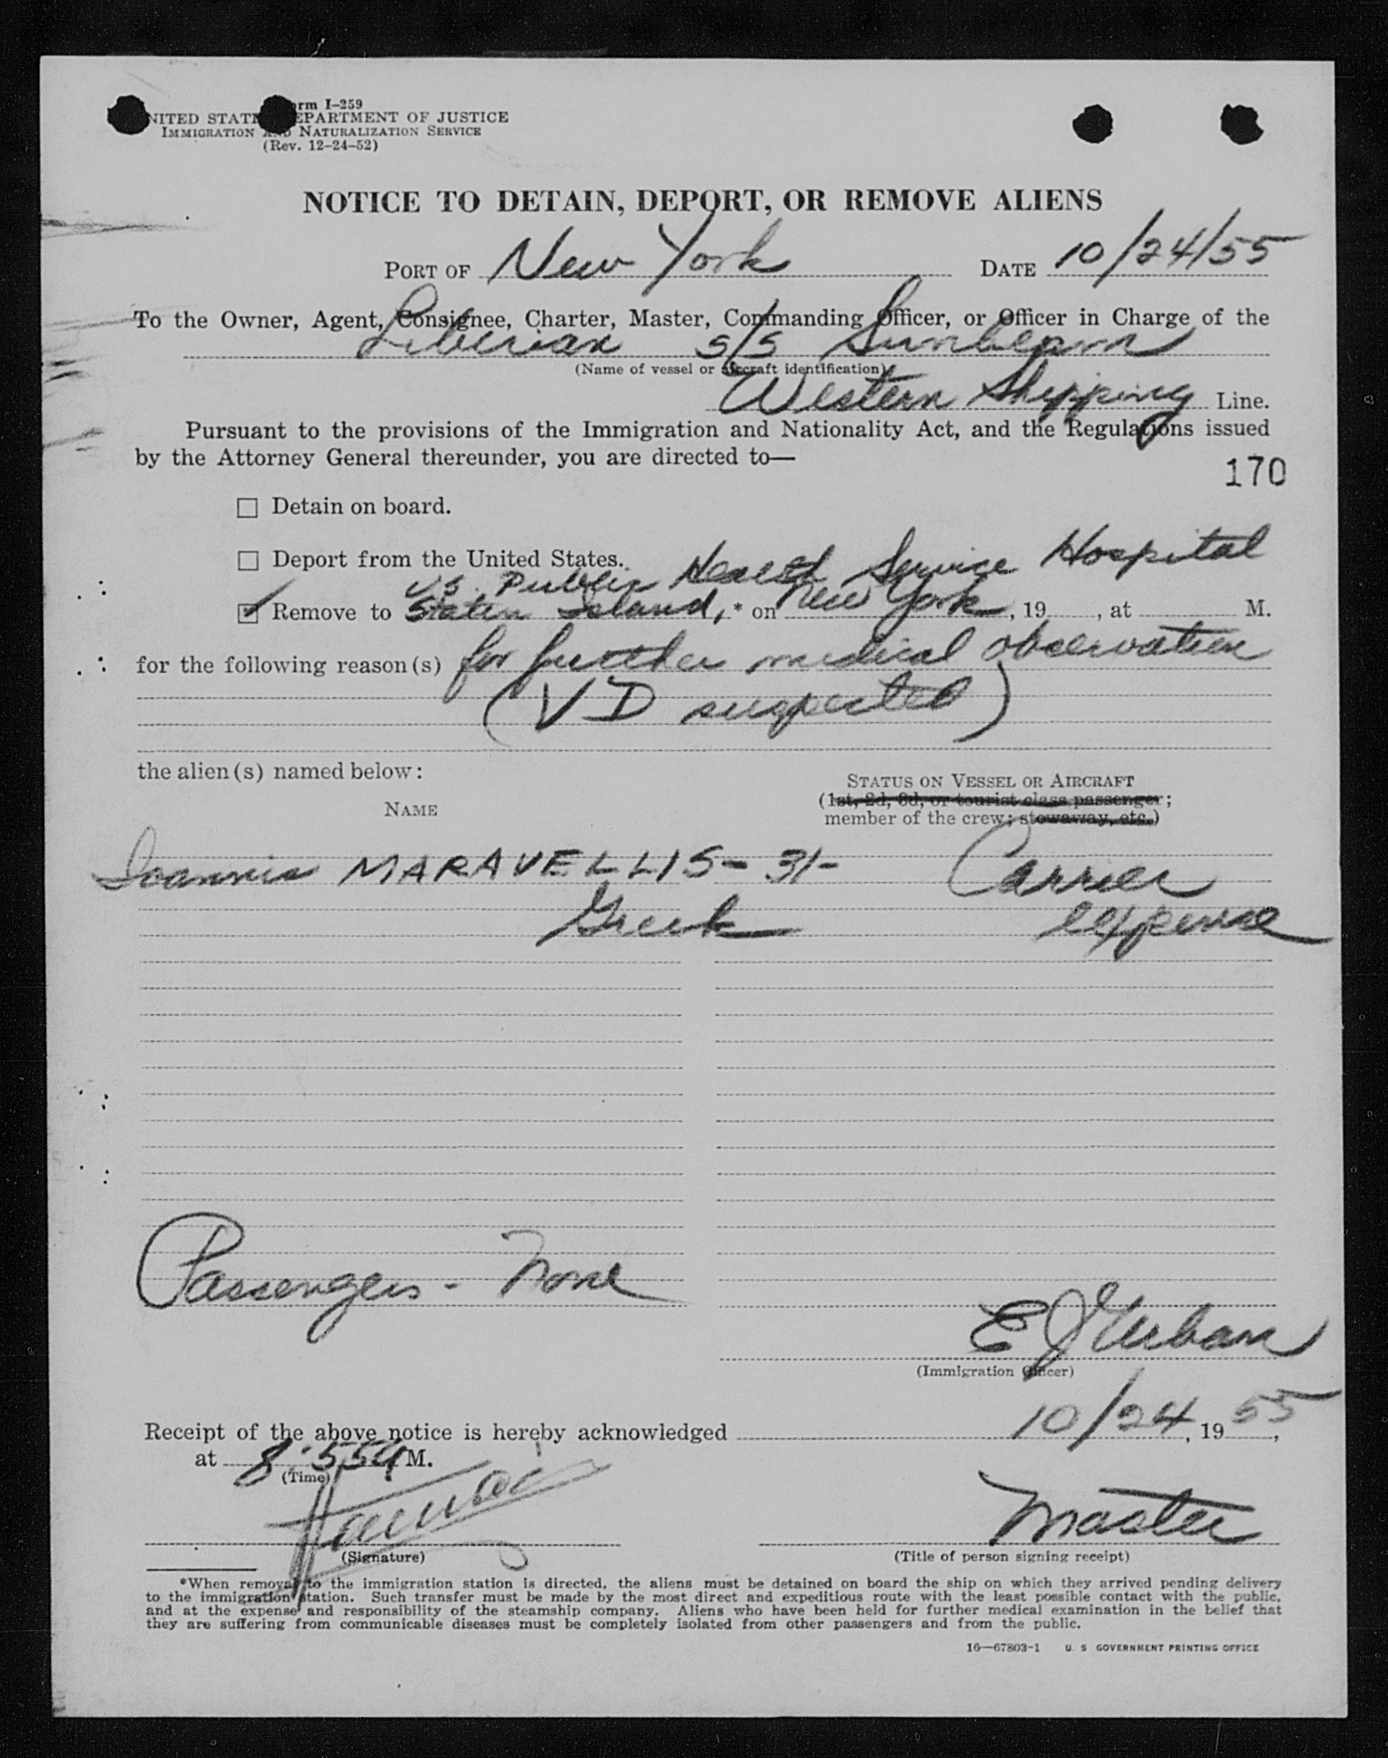 Form I-259
UNITED STATES DEPARTMENT OF JUSTICE
IMMIGRATION AND NATURALIZATION SERVICE
(Rev. 12-24-52)
NOTICE TO DETAIN, DEPORT, OR REMOVE ALIENS
PORT OF New York DATE 10/24/55
To the Owner, Agent, Consignee, Charter, Master, Commanding Officer, or Officer in Charge of the
Liberian s/s Sunbeam
(Name of vessel or aircraft identification)
Western Shipping Line.
Pursuant to the provisions of the Immigration and Nationality Act, and the Regulations issued
by the Attorney General thereunder, you are directed to—
170
☐ Detain on board.
☐ Deport from the United States.
U.S. Public Health Service Hospital
☑ Remove to Staten Island,* on New York, 19 , at M.
for the following reason(s) for further medical observation
(VD suspected)
the alien(s) named below:
STATUS ON VESSEL OR AIRCRAFT
NAME
(1st, 2d, 3d, or tourist class passenger;
member of the crew; stowaway, etc.)
Ioannis MARAVELLIS - 31- Carrier
Greek expense
Passengers - None
E J Urban
(Immigration Officer)
Receipt of the above notice is hereby acknowledged 10/24, 1955,
at 8:55A M.
(Time)
Master
(Signature)
(Title of person signing receipt)
*When removal to the immigration station is directed, the aliens must be detained on board the ship on which they arrived pending delivery
to the immigration station. Such transfer must be made by the most direct and expeditious route with the least possible contact with the public,
and at the expense and responsibility of the steamship company. Aliens who have been held for further medical examination in the belief that
they are suffering from communicable diseases must be completely isolated from other passengers and from the public.
16—67803-1 U. S. GOVERNMENT PRINTING OFFICE